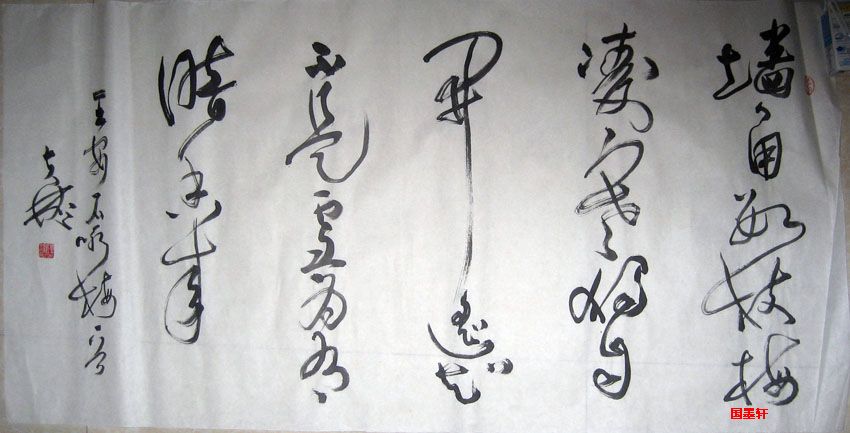 墙角数枝梅
凌寒独自
开遥知
不是雪为有
暗香来
王安石咏梅一首
国墨轩